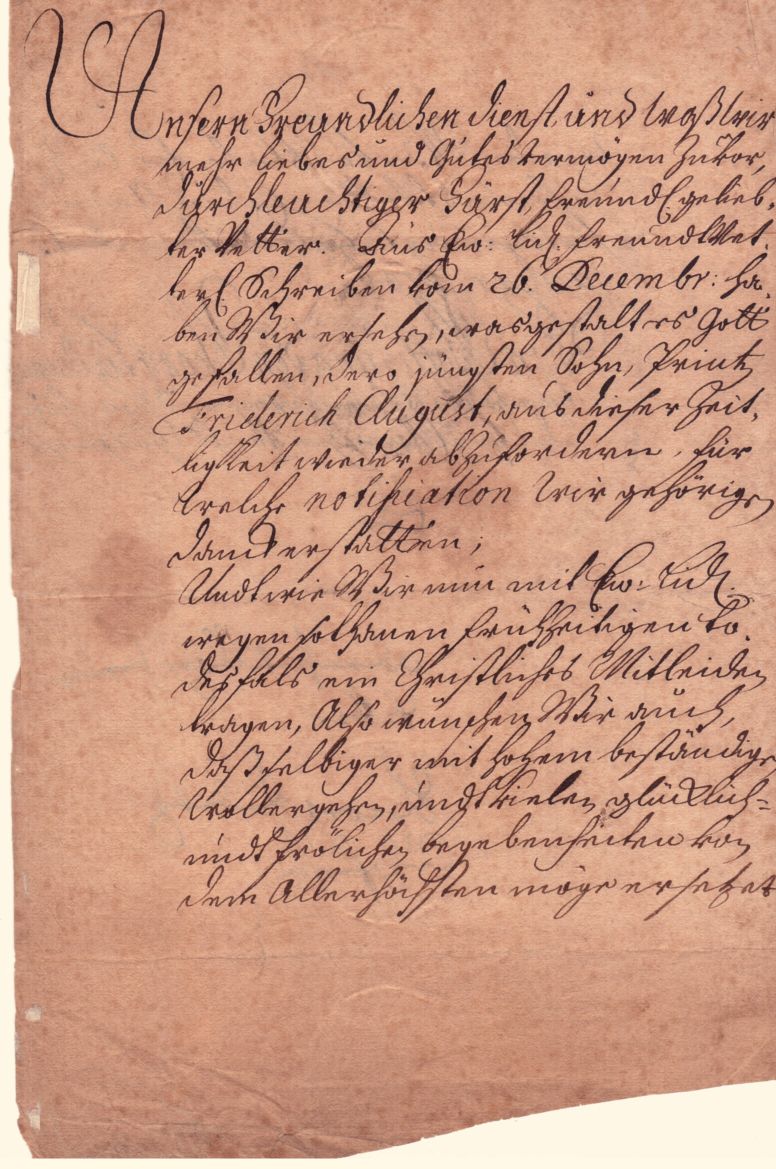 Unsern Freundlichen dienst, und waß wir
mehr liebes und Gutes vermögen zuvor,
Durchleuchtiger Fürst, freundl. gelieb-
ter Vetter. Aus Ew: Lbd. freundtvet-
terl. Schreiben vom 26. Decembr: ha-
ben Wir ersehen, wasgestalt es Gott
gefallen, dero jüngsten Sohn, Printz
Friderich August, aus dieser Zeit-
ligkeit wieder abzufordern, für
welche notification wir gehörigen
danck erstatten;
Undt wie Wir nun mit Ew: Lbd.
wegen sothanen frühzeitigen to-
desfals ein Christliches Mitleiden
tragen, Also wünschen Wir auch,
daß selbiger mit hohem beständigen
wollergehen, undt vielen glücklich-
undt frölichen begebenheiten von
dem Allerhöchsten möge ersetzet